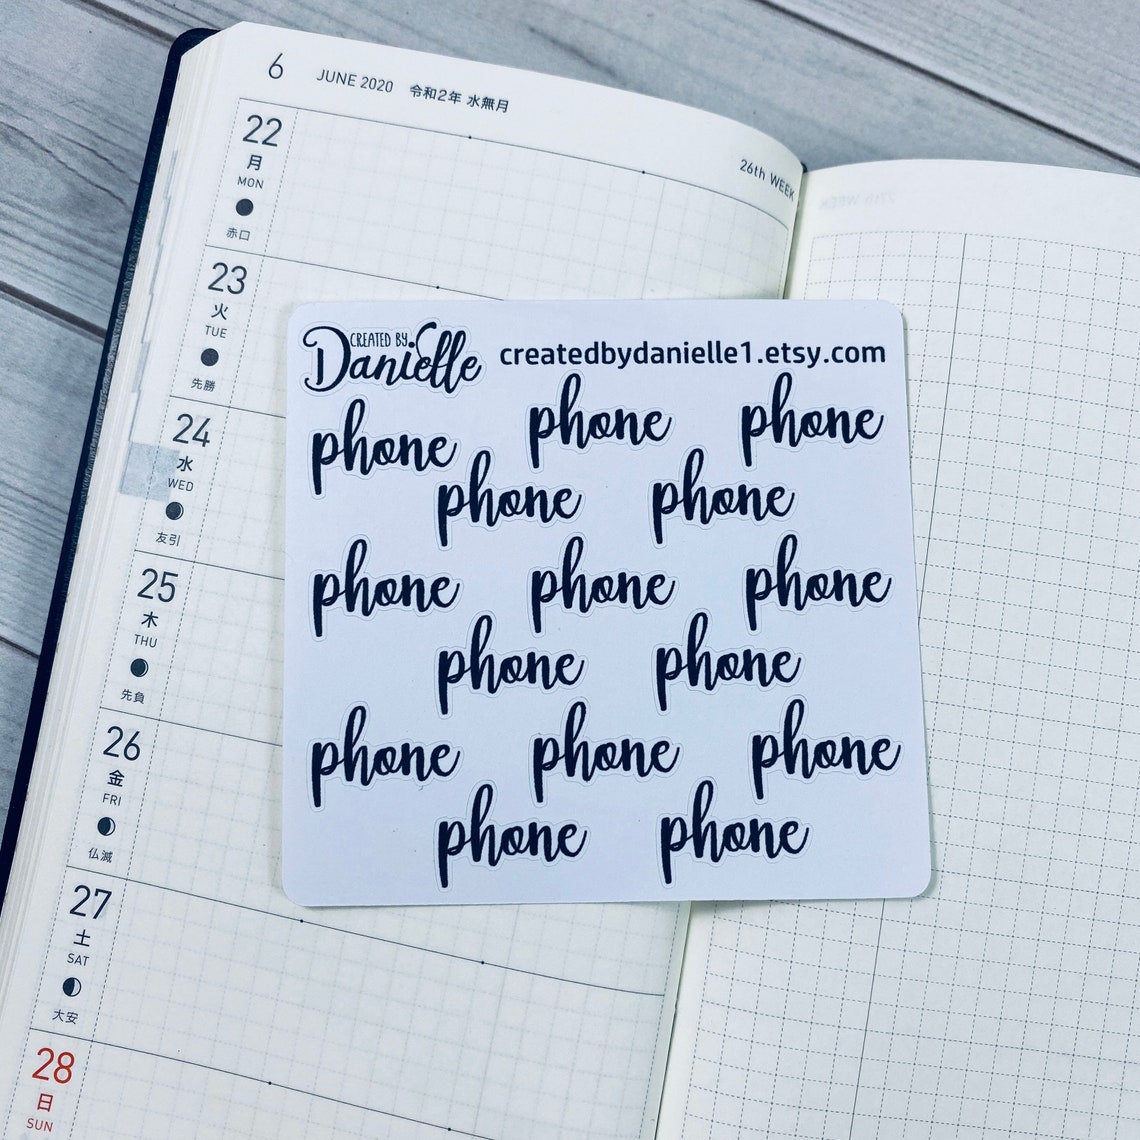 6 JUNE 2020 令和2年 水無月
26th WEEK
27th WEEK
22
月
MON
赤口
23
火
TUE
先勝
24
水
WED
友引
25
木
THU
先負
26
金
FRI
仏滅
27
土
SAT
大安
28
日
SUN
CREATED BY
Danielle
createdbydanielle1.etsy.com
phone phone phone
phone phone
phone phone phone
phone phone
phone phone phone
phone phone